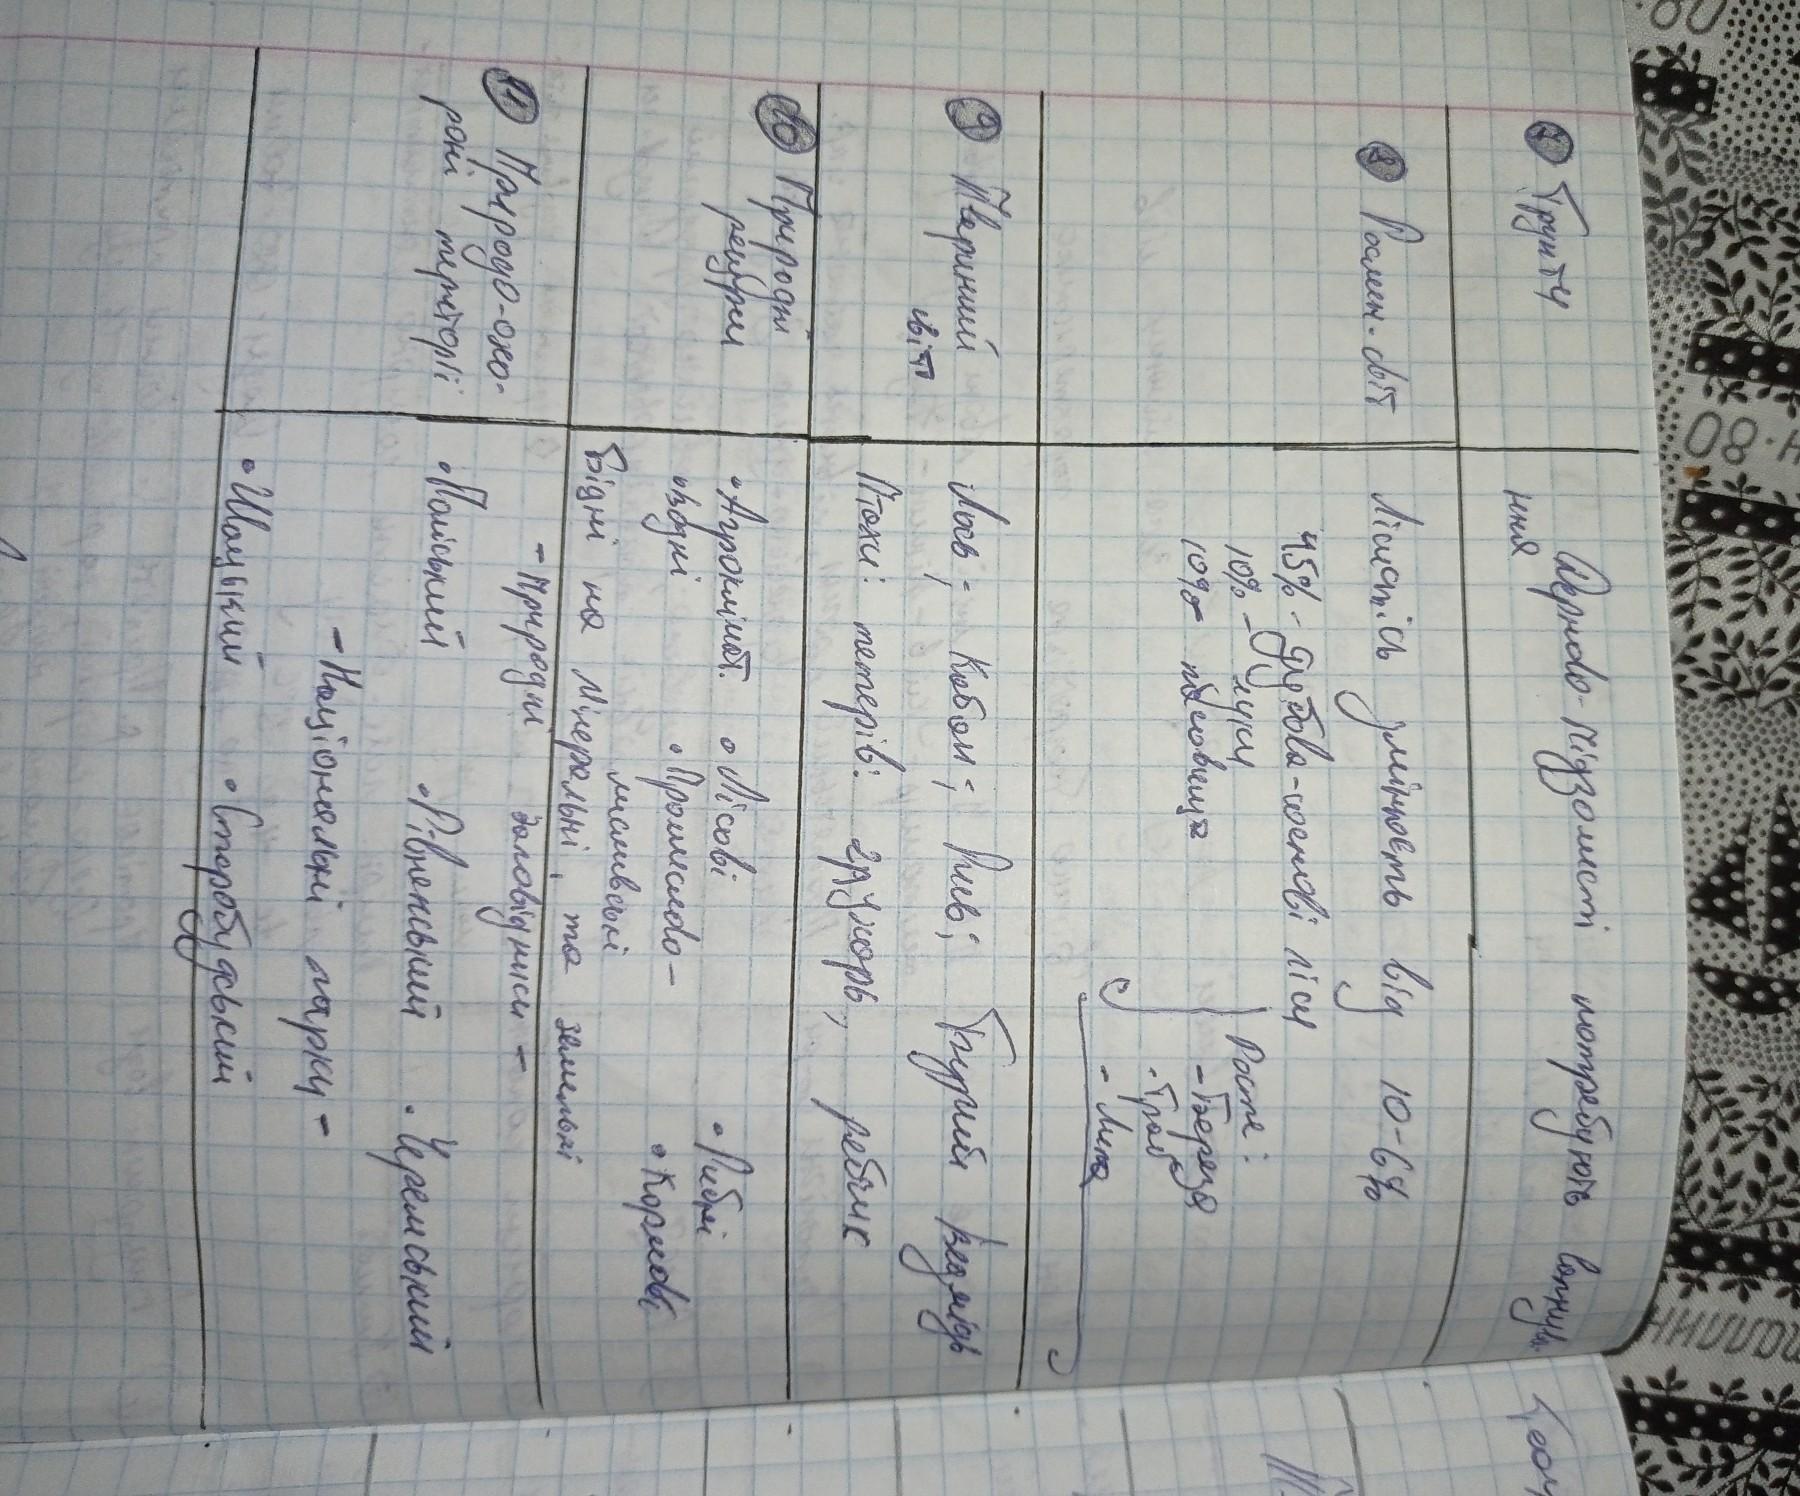 7 Грунти
Дерново-підзолисті потребують вапнува-
ння
8 Рослин. світ
Лісистість змінюєть від 10-6%
45% - Дубово-соснові ліси
10% - луки
10% - пасовища
Росте:
- Береза
- Граб
- Липа
9 Тваринний
світ
Лось; Кабан; Рись; Бурий ведмідь
Птахи: тетерів; глухарь; рябчик
10 Природні
ресурси
• Агроклімат. • Лісові • Рибні
• водні • Промислово-
мисливські • Кормові
Бідні на мінеральні та земельні
11 Природо-охо-
роні територіі
- Природні заповідники -
• Поліський • Рівненський • Черемський
- Національні парки -
• Шацький • Старобудський